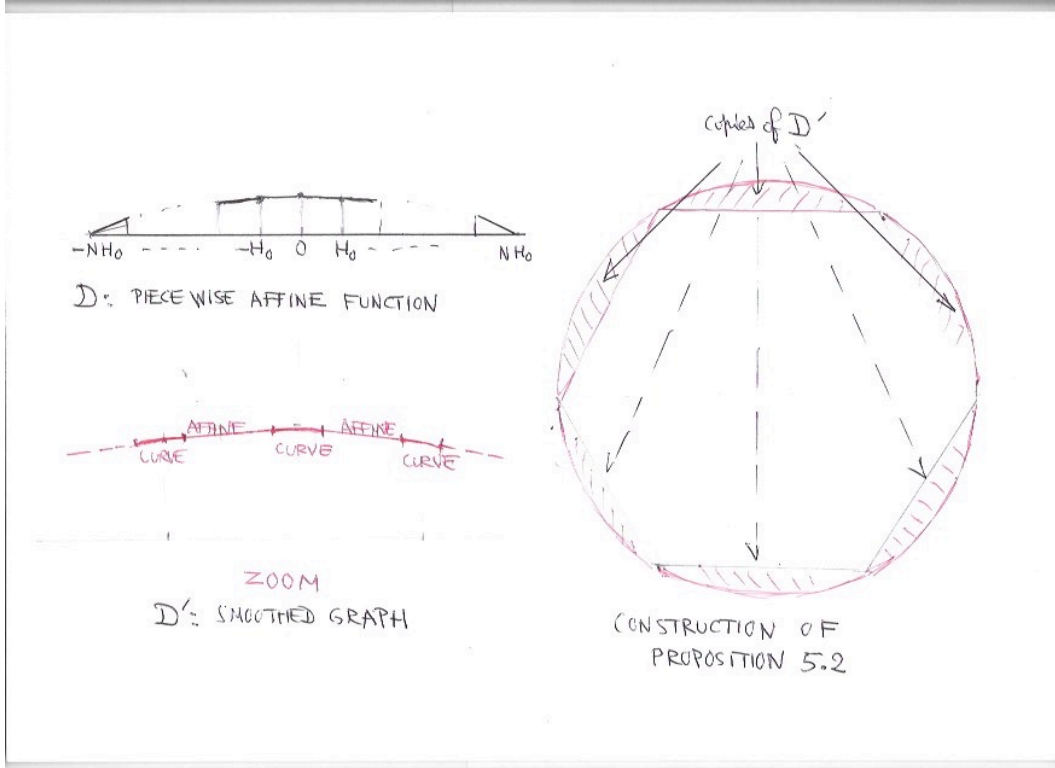 -NH₀ ---- -H₀ 0 H₀ ---- NH₀
D: PIECEWISE AFFINE FUNCTION
AFFINE AFFINE
CURVE CURVE CURVE
ZOOM
D': SMOOTHED GRAPH
copies of D'
CONSTRUCTION OF
PROPOSITION 5.2